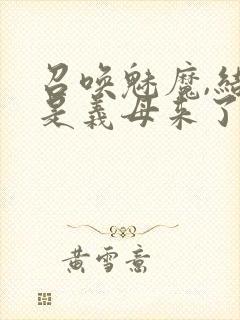 召唤魅魔,结
是义母来了
黄雪意